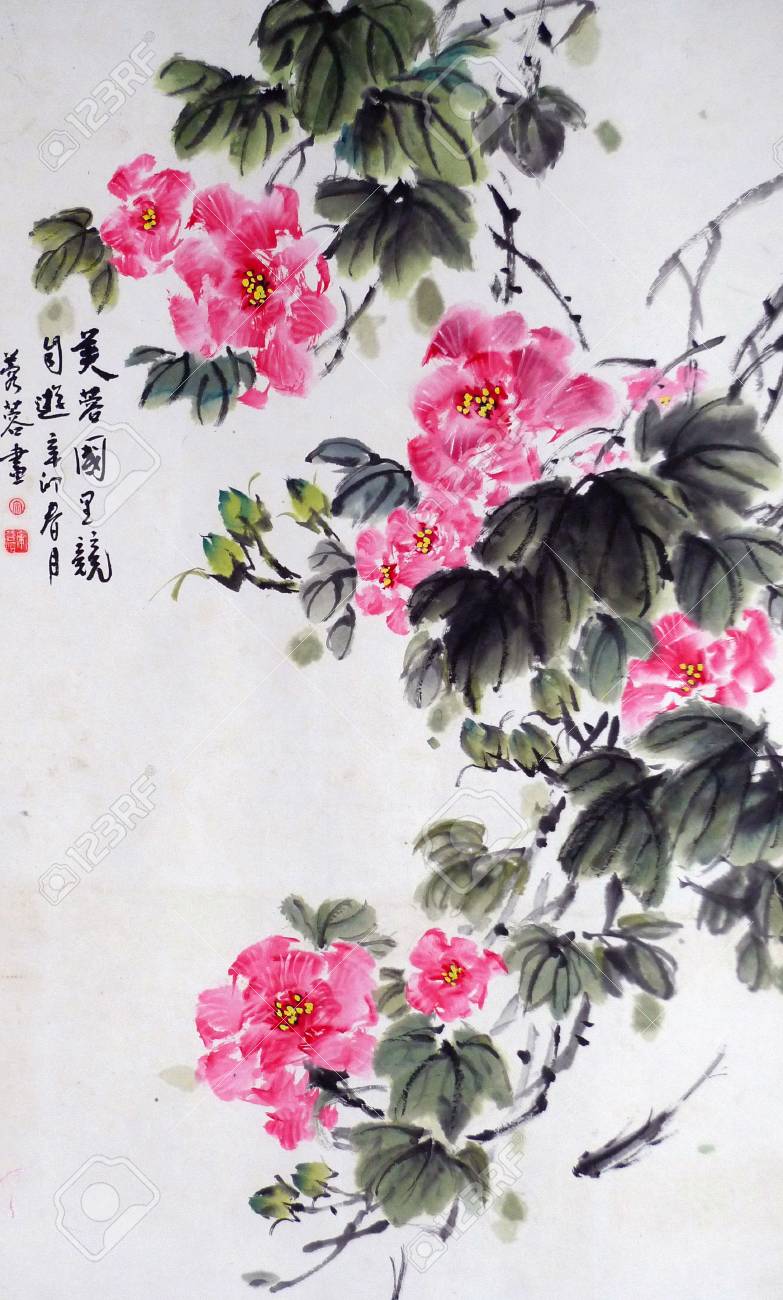 芙蓉國里競
自遊辛卯春月
蓉蓉畫
123RF
123RF
123RF
123RF
123RF
123RF